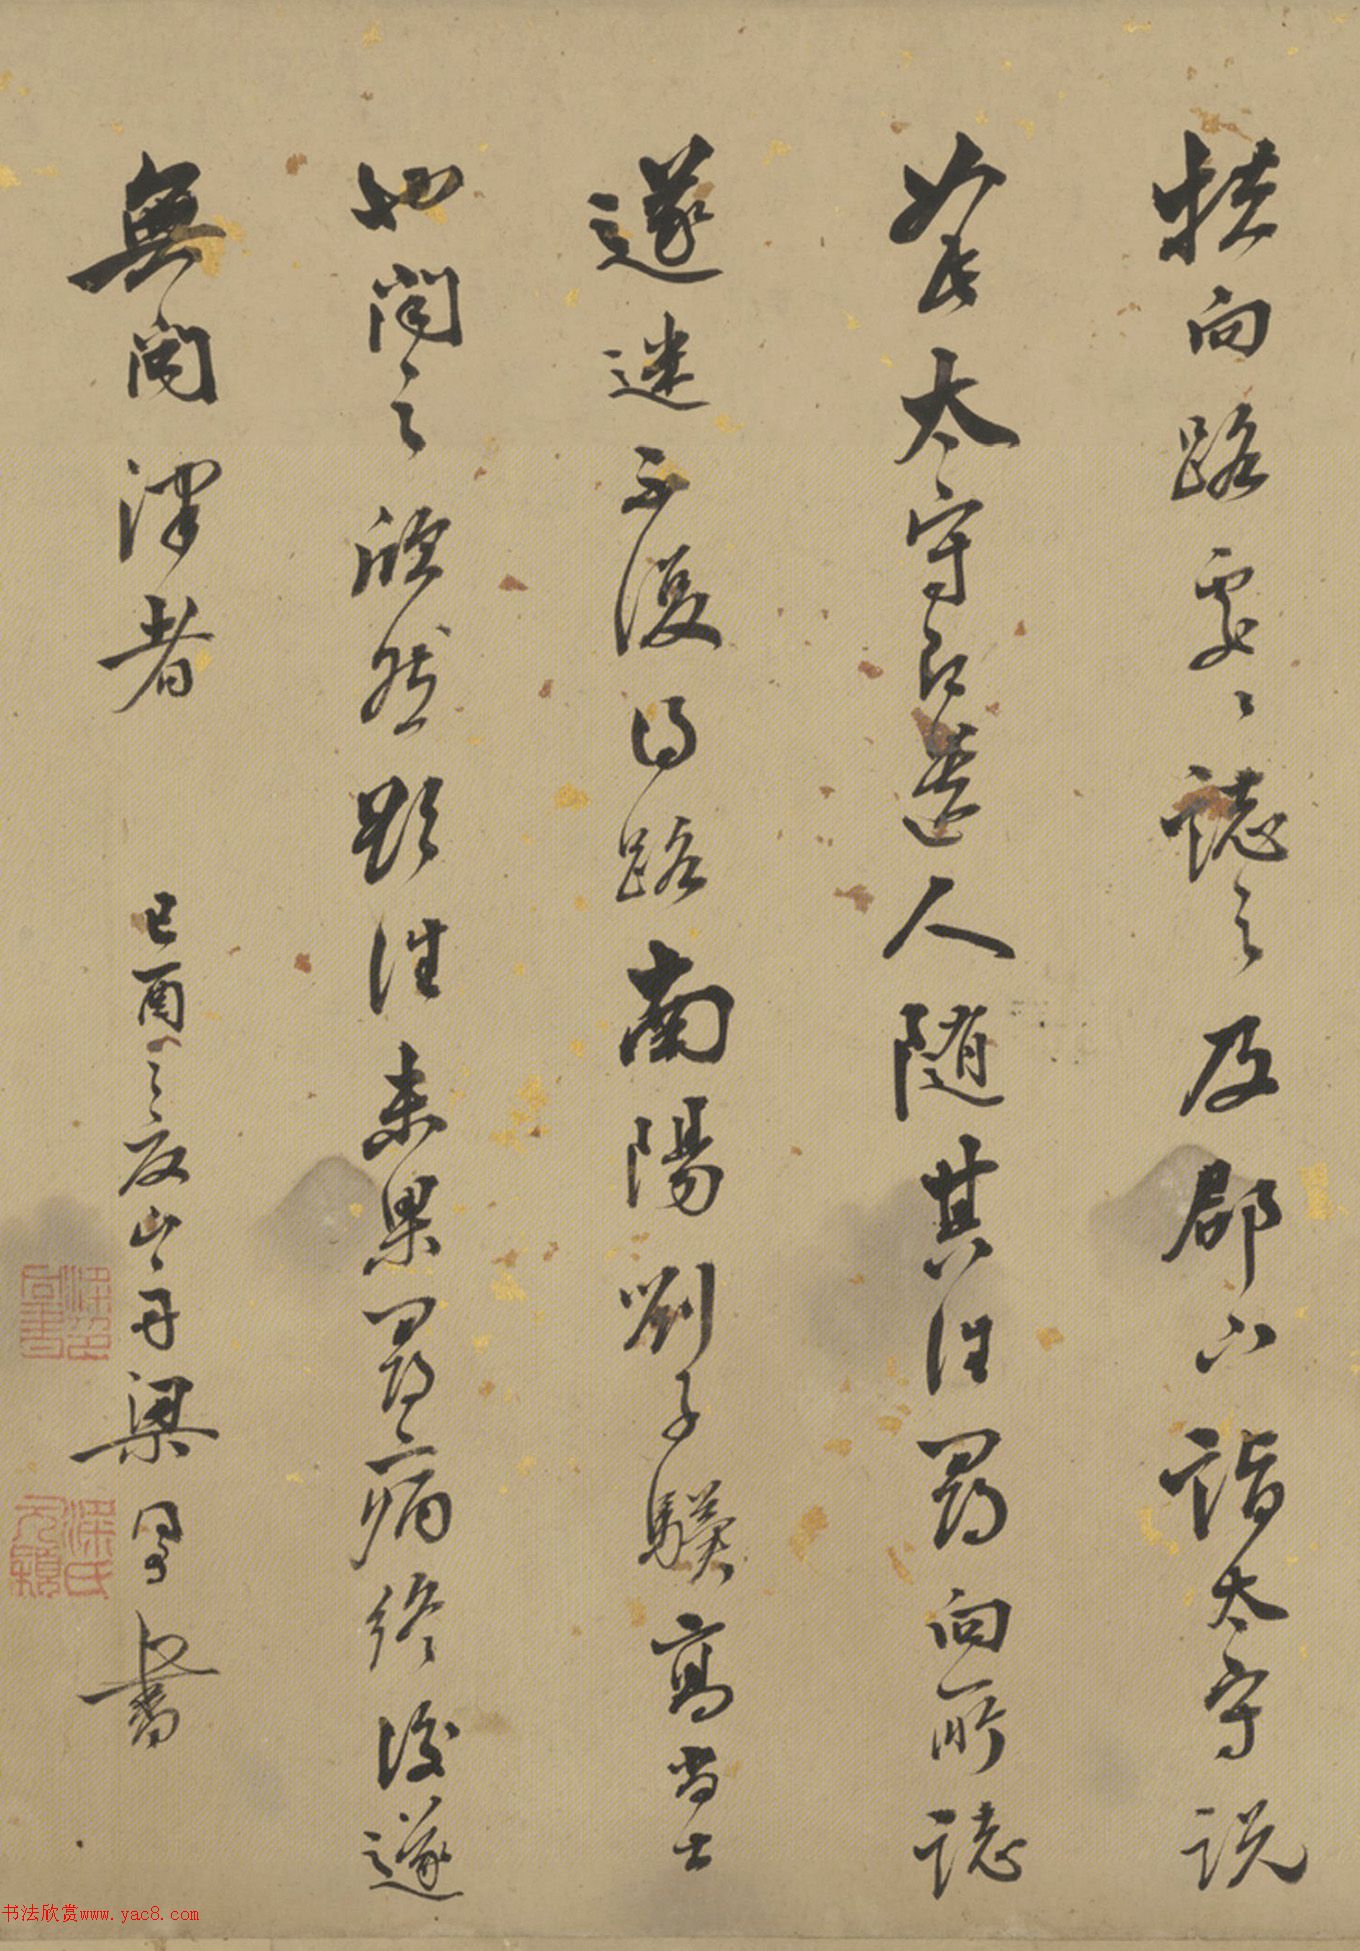 扶向路處〻誌之及郡下詣太守說
如此太守即遣人隨其往尋向所誌
遂迷不復得路南陽劉子驥高尚士
也聞之欣然往未果尋病終後遂
無問津者
己酉之夏山舟梁同書
梁同書印
梁氏元穎
书法欣赏www.yac8.com